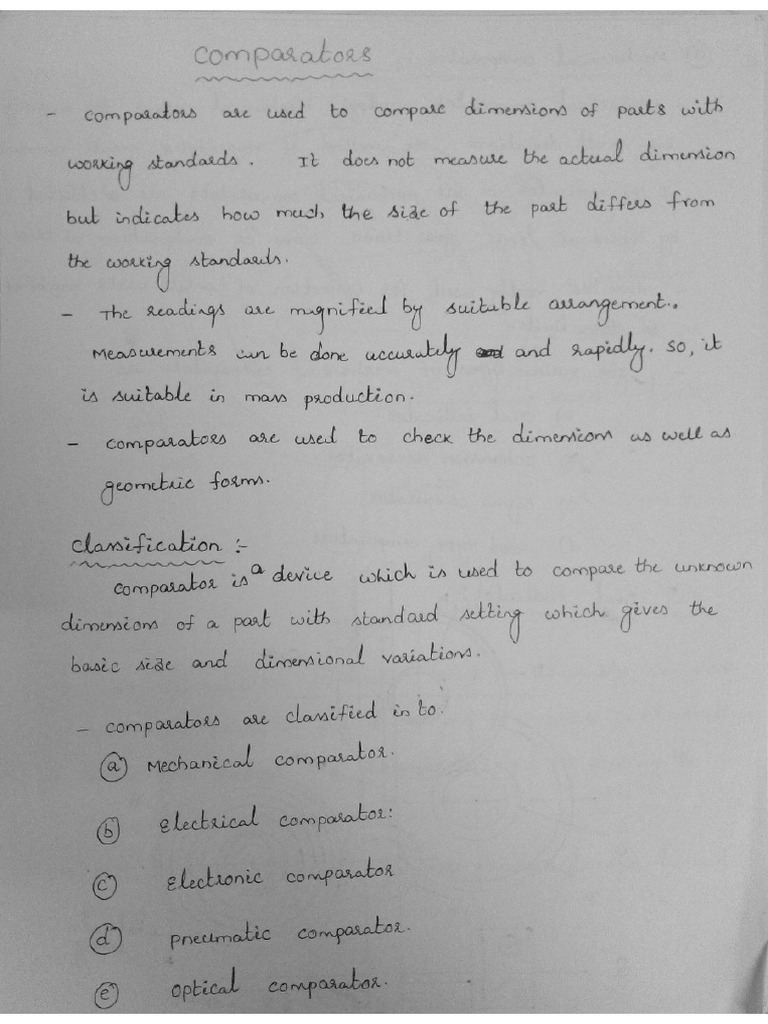 Comparators
- Comparators are used to compare dimensions of parts with
working standards. It does not measure the actual dimension
but indicates how much the size of the part differs from
the working standards.
- The readings are magnified by suitable arrangement.
Measurements can be done accurately and rapidly. So, it
is suitable in mass production.
- Comparators are used to check the dimensions as well as
geometric forms.
Classification :-
Comparator is a device which is used to compare the unknown
dimensions of a part with standard setting which gives the
basic size and dimensional variations.
- Comparators are classified in to.
(a) Mechanical comparator.
(b) Electrical comparator:
(c) Electronic comparator
(d) pneumatic comparator.
(e) optical comparator.